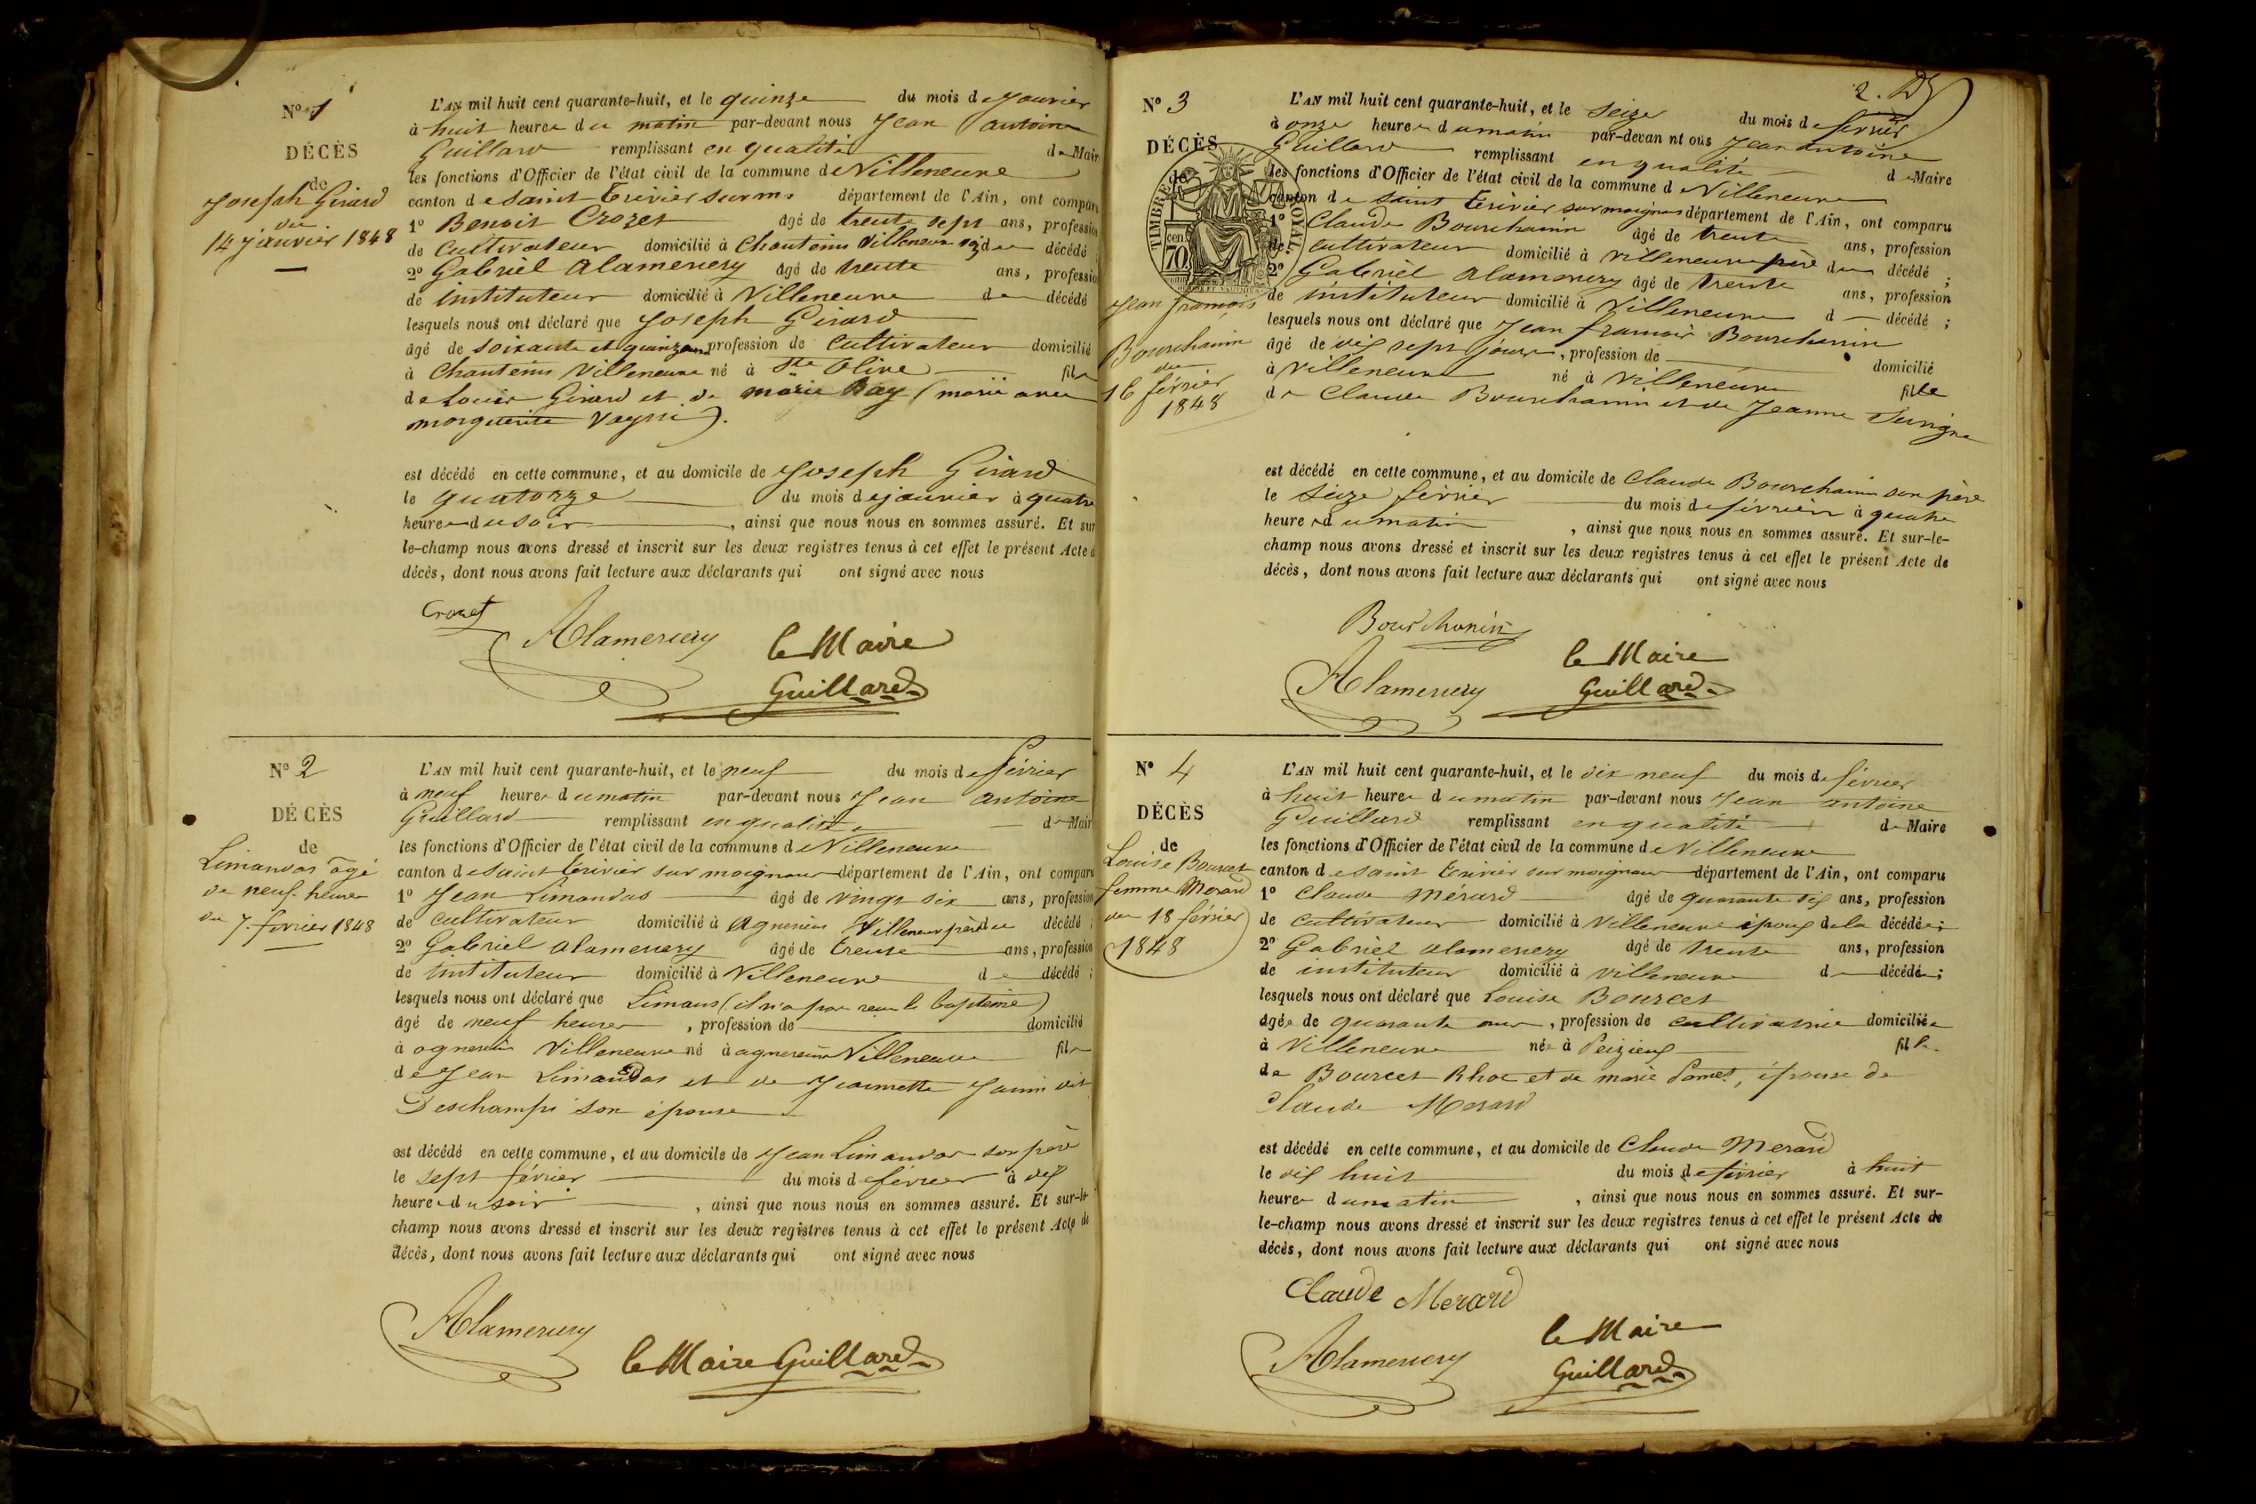 N° 1
DÉCÈS
de
Joseph Girard
du
14 janvier 1848
L'AN mil huit cent quarante-huit, et le quinze du mois de janvier
à huit heures du matin par-devant nous Jean antoine
Guillard remplissant en qualité de Mair
les fonctions d'Officier de l'état civil de la commune de Villeneuve
canton de saint trivier sur m. département de l'Ain, ont compar
1° Benoit Crozet âgé de trente sept ans, profession
de cultivateur domicilié à Chanteins Villeneuve décédé
2° Gabriel alamercery âgé de trente ans, profession
de instituteur domicilié à Villeneuve d décédé
lesquels nous ont déclaré que Joseph Girard
âgé de soixante et quinze ans profession de cultivateur domicilié
à Chanteins Villeneuve né à Ste Olive fils
de Louis Girard et de marie Ray (marié avec
marguerite Vayssi).
est décédé en cette commune, et au domicile de Joseph Girard
le quatorze du mois de janvier à quatre
heures du soir, ainsi que nous nous en sommes assuré. Et sur
le-champ nous avons dressé et inscrit sur les deux registres tenus à cet effet le présent Acte d
décès, dont nous avons fait lecture aux déclarants qui ont signé avec nous
Crozet
Alamercery
le Maire
Guillard
N° 2
DÉCÈS
de
Limandas âgé
de neuf heures
du 7 fevrier 1848
L'AN mil huit cent quarante-huit, et le neuf du mois de février
à neuf heures du matin par-devant nous Jean antoine
Guillard remplissant en qualité de Mair
les fonctions d'Officier de l'état civil de la commune de Villeneuve
canton de saint trivier sur moignans département de l'Ain, ont compar
1° Jean Limandas âgé de vingt six ans, profession
de cultivateur domicilié à Agnereins Villeneuve père du décédé ;
2° Gabriel alamercery âgé de trente ans, profession
de instituteur domicilié à Villeneuve d décédé ;
lesquels nous ont déclaré que Limans (il n'a pas reçu le baptême)
âgé de neuf heures, profession de domicilié
à agnereins Villeneuve né à agnereins Villeneuve fils
de Jean Limandas et de Jeannette Janin dit
Deschamps son épouse
est décédé en cette commune, et au domicile de Jean Limandas son père
le sept février du mois de février à dix
heures du soir, ainsi que nous nous en sommes assuré. Et sur-le
champ nous avons dressé et inscrit sur les deux registres tenus à cet effet le présent Acte de
décès, dont nous avons fait lecture aux déclarants qui ont signé avec nous
Alamercery
le Maire Guillard
2.
N° 3
DÉCÈS
de
TIMBRE ROYAL
cen.
70
Jean françois
Bourchanin
du
16 février
1848
L'AN mil huit cent quarante-huit, et le seize du mois de février
à onze heures du matin par-devan nt ous Jean antoine
Guillard remplissant en qualité de Maire
les fonctions d'Officier de l'état civil de la commune d Villeneuve
canton de saint trivier sur moignans département de l'Ain, ont comparu
1° Claude Bourchanin âgé de trente ans, profession
de cultivateur domicilié à Villeneuve père du décédé ;
2° Gabriel alamercery âgé de trente ans, profession
de instituteur domicilié à Villeneuve d décédé ;
lesquels nous ont déclaré que Jean françois Bourchanin
âgé de dix sept jours, profession de domicilié
à Villeneuve né à Villeneuve fils
de Claude Bourchanin et de Jeanne
est décédé en cette commune, et au domicile de Claude Bourchanin son père
le seize février du mois de février à quatre
heures du matin, ainsi que nous nous en sommes assuré. Et sur-le-
champ nous avons dressé et inscrit sur les deux registres tenus à cet effet le présent Acte de
décès, dont nous avons fait lecture aux déclarants qui ont signé avec nous
Bourchanin
Alamercery
le Maire
Guillard
N° 4
DÉCÈS
de
Louise Bourcet
femme Merard
du 18 février
1848
L'AN mil huit cent quarante-huit, et le dix neuf du mois de février
à huit heures du matin par-devant nous Jean antoine
Guillard remplissant en qualité de Maire
les fonctions d'Officier de l'état civil de la commune de Villeneuve
canton de saint trivier sur moignans département de l'Ain, ont comparu
1° Claude Mérard âgé de quarante six ans, profession
de cultivateur domicilié à Villeneuve époux de la décédée ;
2° Gabriel alamercery âgé de trente ans, profession
de instituteur domicilié à Villeneuve d décédé ;
lesquels nous ont déclaré que Louise Bourcet
âgée de quarante ans, profession de cultivatrice domiciliée
à Villeneuve née à Peizieux fille
de Bourcet et de marie Pomet, épouse de
Claude Merard
est décédé en cette commune, et au domicile de Claude Merard
le dix huit du mois de février à huit
heures du matin, ainsi que nous nous en sommes assuré. Et sur-
le-champ nous avons dressé et inscrit sur les deux registres tenus à cet effet le présent Acte de
décès, dont nous avons fait lecture aux déclarants qui ont signé avec nous
Claude Merard
Alamercery
le Maire
Guillard